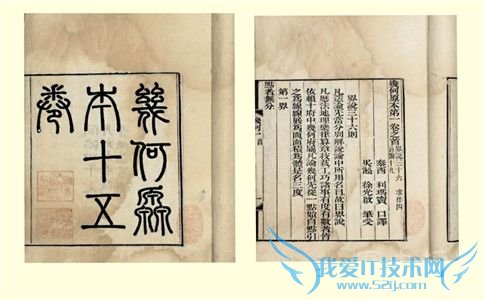 幾何原
本十五
卷
幾何原本第一卷之首 界說三十六 求作四
公論十九
泰西 利瑪竇 口譯
吳淞 徐光啟 筆受
界說三十六則
凡造論先當分別解說論中所用名目故曰界說
凡歷法地理樂律算章技藝工巧諸事有度有數者皆
依賴十府中幾何府屬凡論幾何先從一點始自點引
之為線線展為面面積為體是名三度
第一界
點者無分
我爱IT技术网
www.52ij.com